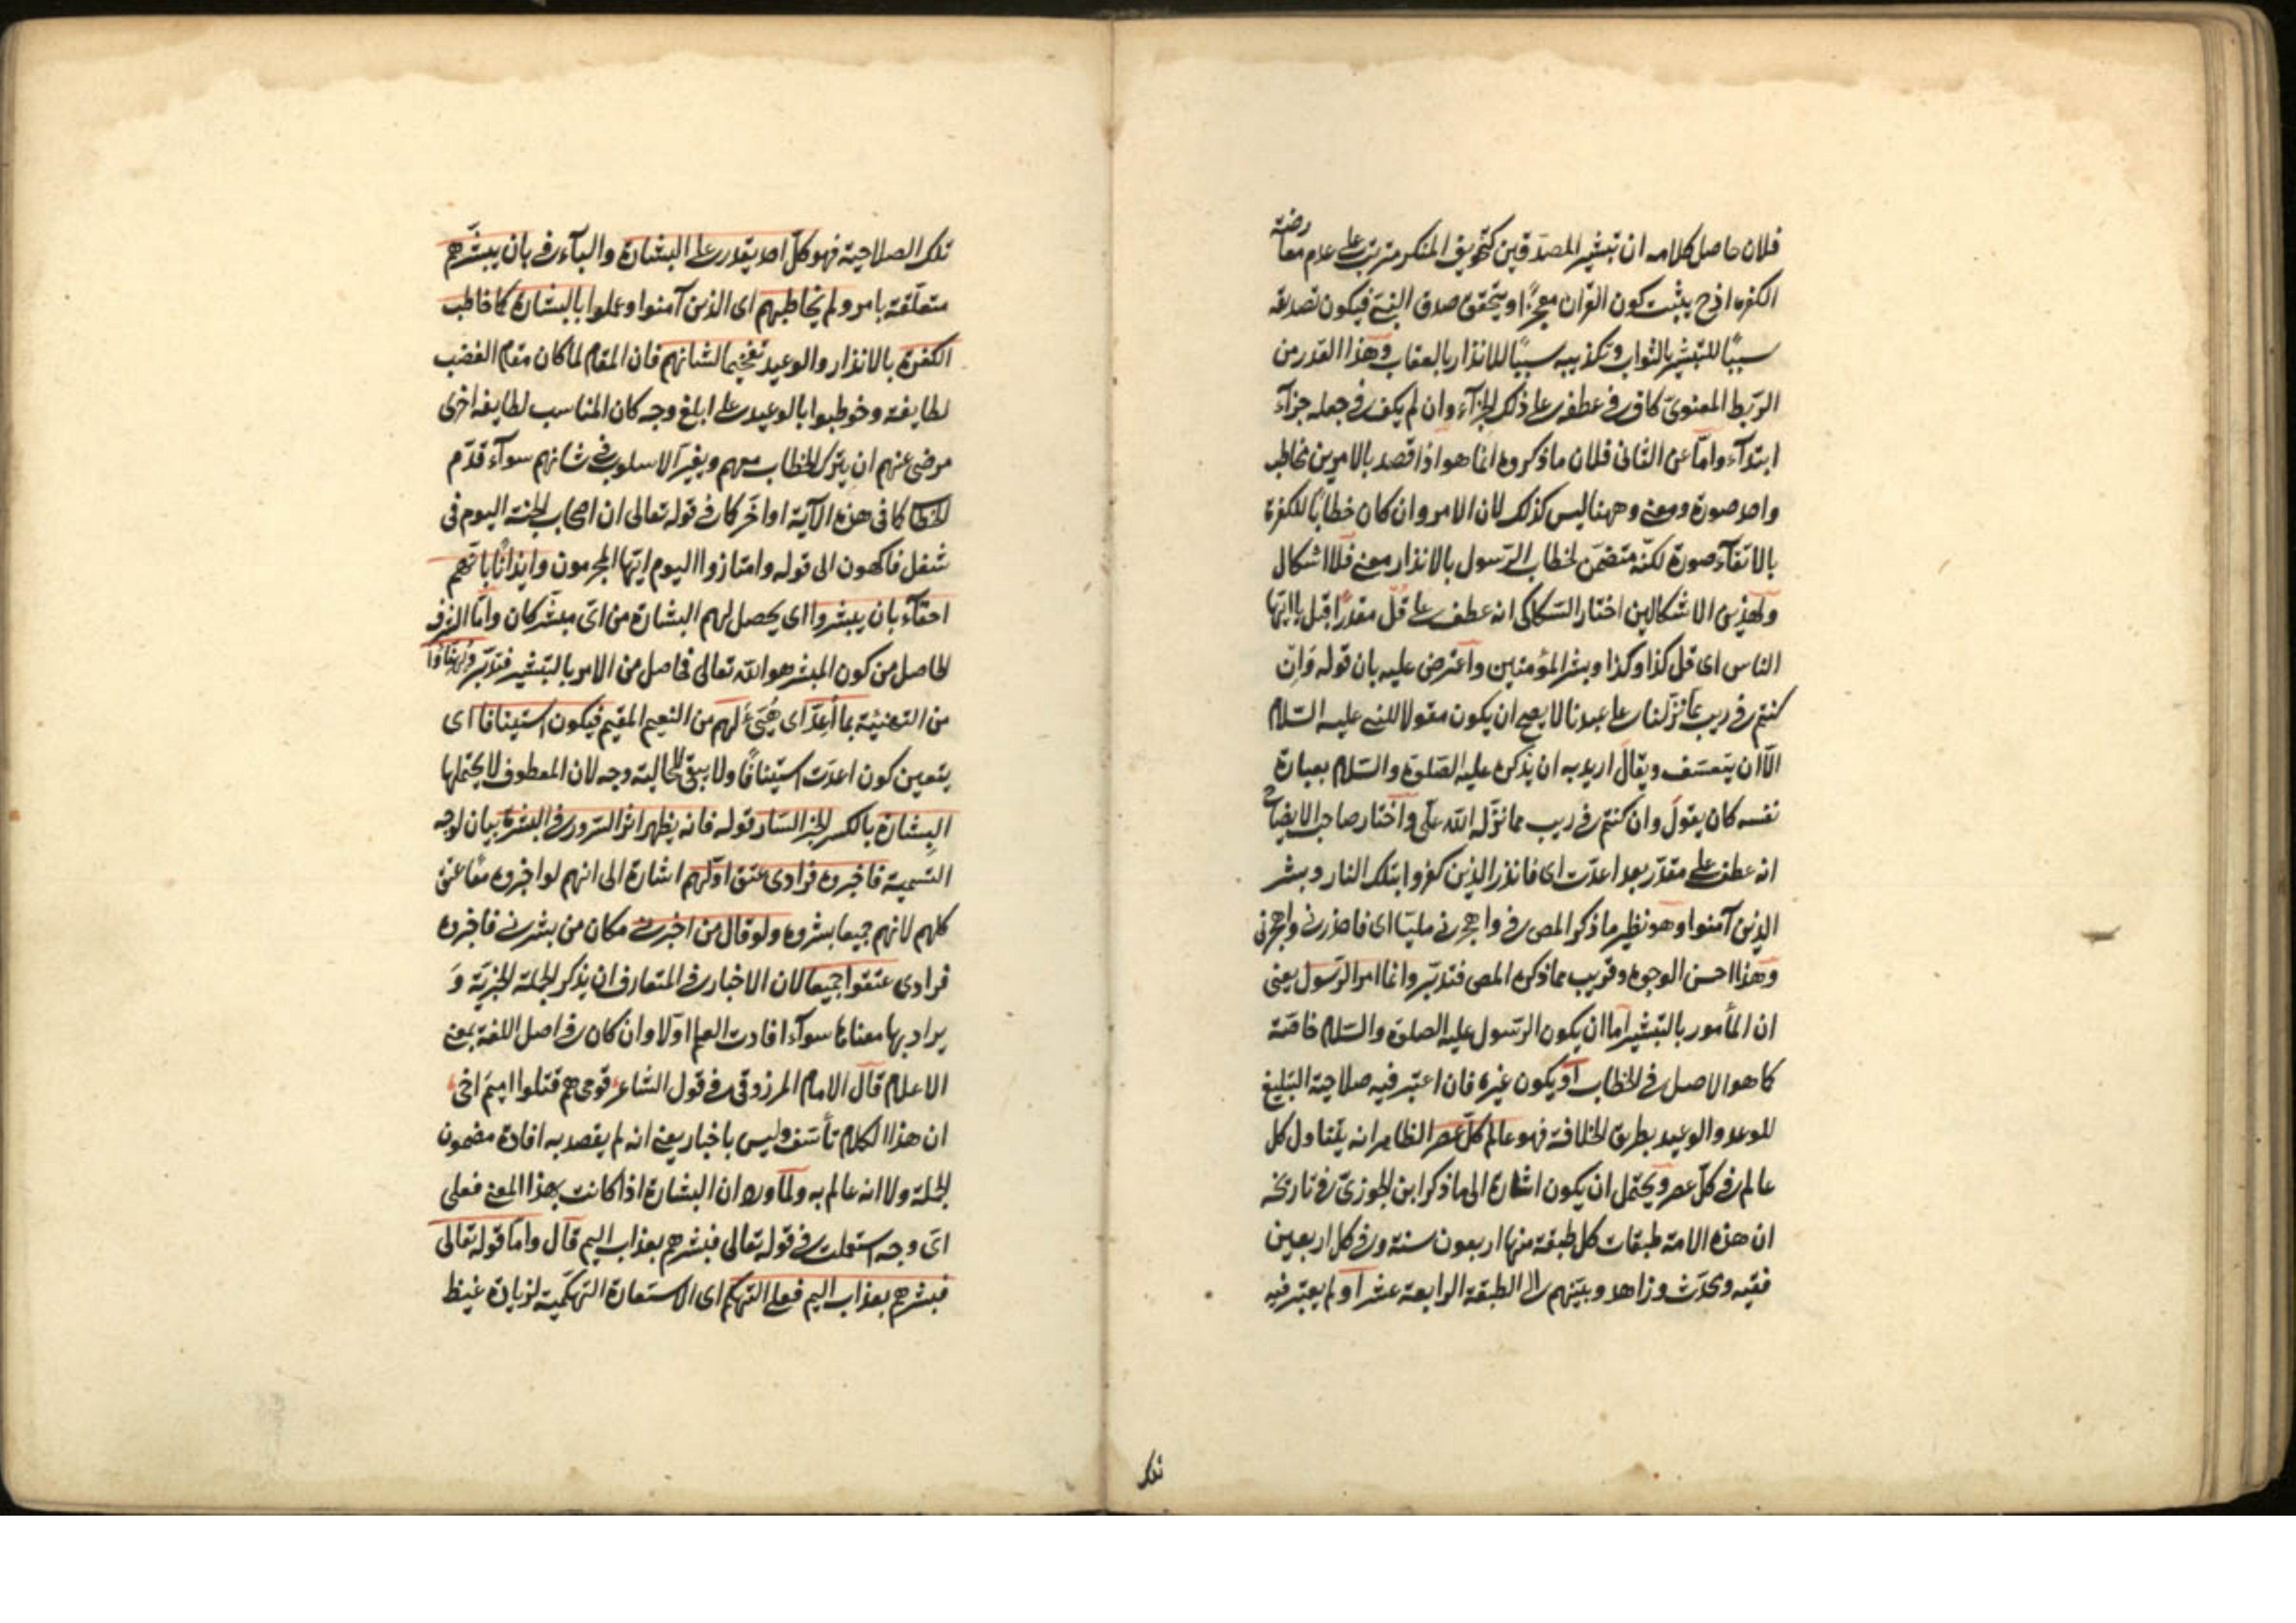 فلان حاصل كلامه ان تبشير المصدقين كتخويف المنكر مترتب على عدم معارضة
الكفره اذ ح يثبت كون القرآن معجزا ويتحقق صدق النبى فيكون تصديقه
سببًا للتبشير بالثواب وتكذيبه سببًا للانذار بالعقاب وهذا القدر من
الربط المعنوىّ كاف فى عطفه على ذلك الجزآء وان لم يكف فى جعله جزآء
ابتدآء وامّا عن الثانى فلان ما ذكروه انما هو اذا قصد بالامرين مخاطب
واحد صورة ومعنى وههنا ليس كذلك لان الامر وان كان خطابًا للكفرة
بالاتقآء صورة لكنّه متضمّن لخطاب الرّسول بالانذار معنى فلا اشكال
ولهذين الاشكالين اختار السّكاكى انه عطف على قل مقدّرًا قبل يا ايّها
الناس اى قل كذا وكذا وبشر المؤمنين واعترض عليه بان قوله وَاِن
كنتم فى ريب ممّا نزّلنا على عبدنا لا يصح ان يكون مقولا للنبى عليه السّلام
الّا ان يتعسّف ويقال اريد به ان يذكره عليه الصّلوة والسّلام بعبارة
نفسه كان يقول وان كنتم فى ريب مما نزّله اللّه علىّ واختار صاحب الايضاح
انه عطف على مقدّر بعد اعدّت اى فانذر الذين كفروا بتلك النار وبشر
الذين آمنوا وهو نظير ما ذكر المص فى واهجرنى مليّا اى فاحذرنى واهجرنى
وهذا احسن الوجوه وقريب مما ذكره المص فتدبّر وانما امر الرّسول يعنى
ان المأمور بالتبشير اما ان يكون الرّسول عليه الصلوة والسّلام خاصّة
كما هو الاصل فى الخطاب او يكون غيره فان اعتبر فيه صلاحية التبليغ
للوعد والوعيد بطريق الخلافة فهو عالم كلّ عصر الظاهر انه يتناول كل
عالم فى كلّ عصر ويحتمل ان يكون اشارة الى ما ذكر ابن الجوزىّ فى تاريخه
ان هذه الامة طبقات كل طبقة منها اربعون سنة وفى كل اربعين
فقيه ومحدّث وزاهد وبيّنهم الى الطبقة الرابعة عشر او لم يعتبر فيه
تلك
تلك الصلاحية فهو كلّ احد يقدر على البشارة والبآء فى بان يبشّرهم
متعلّقة بامر ولم يخاطبهم اى الذين آمنوا وعملوا بالبشارة كما خاطب
الكفرة بالانذار والوعيد تفخيما لشانهم فان المقام لما كان مقام الغضب
لطايفة وخوطبوا بالوعيد على ابلغ وجه كان المناسب لطايفة اخرى
مرضى عنهم ان يترك الخطاب معهم ويغيّر الاسلوب فى شانهم سوآء قدّم
الخطا كما فى هذه الآية او اخّر كما فى قوله تعالى ان اصحاب الجنة اليوم فى
شغل فاكهون الى قوله وامتازوا اليوم ايّها المجرمون وايذانًا بانّهم
احقّآء بان يبشروا اى يحصل لهم البشارة من اىّ مبشّر كان وامّا الشرف
الحاصل من كون المبشر هو اللّه تعالى فحاصل من الامر بالتبشير فتدبّر ويُهنّأوا
من التهنئية بما أعدّ اى هُيّئ لهم من النعيم المقيم فيكون استينافا اى
يتعين كون اعدّت استينافًا ولا يبقى للحالية وجه لان المعطوف لا يحتملها
البِشارة بالكسر الخبر السّار قوله فانه يظهر اثر السّرور فى البشرة بيان لوجه
التسمية فاخبروه فرادى عتق اوّلهم اشارة الى انهم لو اخبروه معًا عتق
كلهم لانهم جميعا بشروه ولو قال من اخبرنى مكان من بشرنى فاخبروه
فرادى عتقوا جميعا لان الاخبار فى المتعارف ان يذكر الجملة الخبريّة وَ
يراد بها معناها سوآء افادت العلم اوّلا وان كان فى اصل اللغة بمعنى
الاعلام قال الامام المرزوقى فى قول الشاعر، قومى هم قتلوا اميم اخى،
ان هذا الكلام تأسّف وليس باخبار يعنى انه لم يقصد به افادة مضمون
الجملة ولا انه عالم به ولمّا ورد ان البشارة اذا كانت بهذا المعنى فعلى
اىّ وجه استعملت فى قوله تعالى فبشرهم بعذاب اليم قال وامّا قوله تعالى
فبشرهم بعذاب اليم فعلى التهكم اى الاستعارة التهكّمية لزيادة غيظ